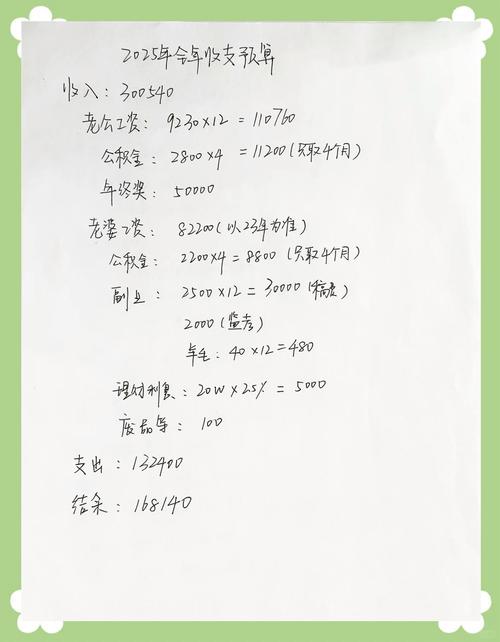 2025年全年收支预算
收入：300540
老公工资：9230×12＝110760
公积金：2800×4＝11200(只取4个月)
年终奖：50000
老婆工资：82200(以23年为准)
公积金：2200×4＝8800(只取4个月)
副业：2500×12＝30000(稿费)
2000(监考)
羊毛：40×12＝480
理财利息：20W×2.5%＝5000
废品等：100
支出：132400
结余：168140